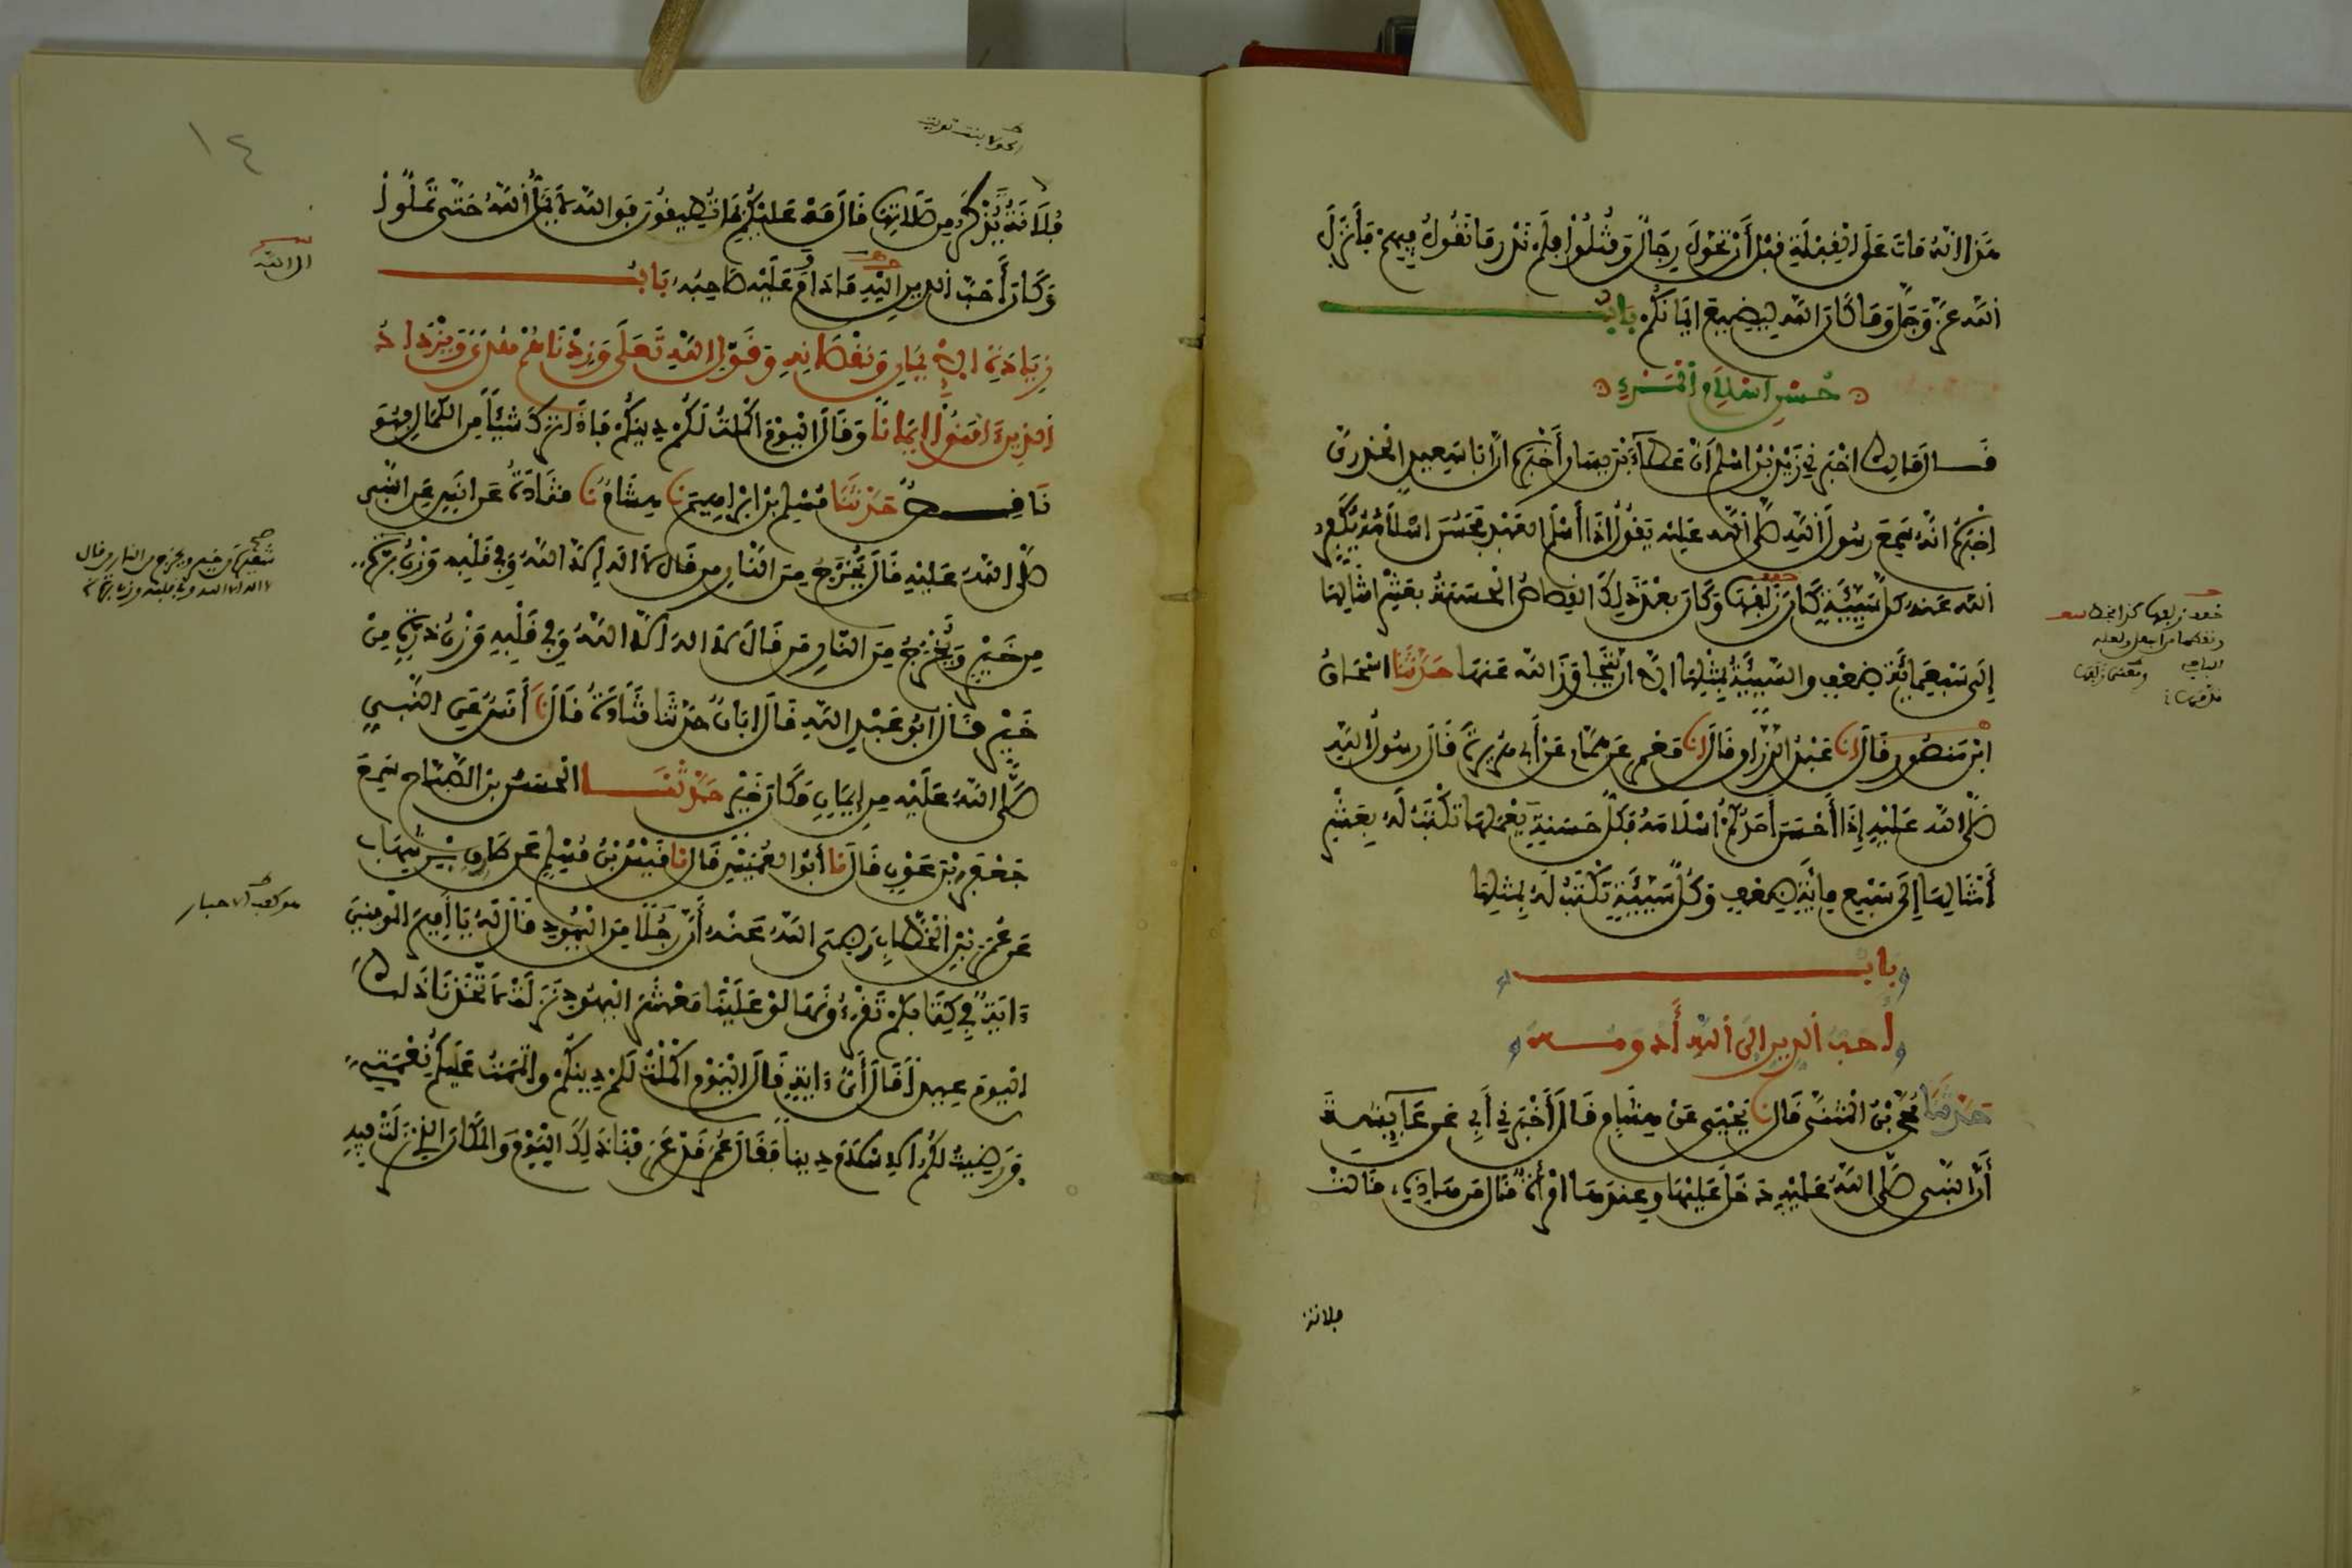 هذا انه مات على القبلة قبل أن تحول رجال وقتلوا فلم ندر ما نقول فيهم فأنزل
الله عز وجل وما كان الله ليضيع ايمانكم باب
حسن اسلام المرء
قال مالك اخبرني زيد بن اسلم ان عطاء بن يسار أخبره ان ابا سعيد الخدري
اخبره انه سمع رسول الله صلى الله عليه يقول اذا أسلم العبد فحسن اسلامه يكفر
الله عنه كل سيئة كان زلفها وكان بعد ذلك القصاص الحسنة بعشر امثالها
إلى سبعمائة ضعف والسيئة بمثلها الا ان يتجاوز الله عنها حدثنا اسحاق
ابن منصور قال انا عبد الرزاق قال انا معمر عن همام عن أبي هريرة قال رسول الله
صلى الله عليه إذا أحسن أحدكم اسلامه فكل حسنة يعملها تكتب له بعشر
أمثالها إلى سبع مائة ضعف وكل سيئة تكتب له بمثلها
باب
أحب الدين الى الله أدومه
حدثنا محمد بن المثنى قال نا يحيى عن هشام قال أخبرني أبي عن عايشة
أن النبي صلى الله عليه دخل عليها وعندها امرأة فقال من هذه قالت
فلانة
الحولاء بنت تويت
فلانة تذكر من صلاتها قال مه عليكم بما تطيقون فوالله لا يمل الله حتى تملوا
وكان أحب الدين اليه ما داوم عليه صاحبه باب
الى الله
زيادة الايمان ونقصانه وقول الله تعلى وزدناهم هدى ويزداد
الذين ءامنوا إيمانا وقال اليوم اكملت لكم دينكم فاذا ترك شيئا من الكمال فهو
ناقص حدثنا مسلم بن ابراهيم نا هشام نا قتادة عن انس عن النبي
صلى الله عليه قال يخرج من النار من قال لا اله الا الله وفي قلبه وزن برة
من خير ويخرج من النار من قال لا اله الا الله وفي قلبه وزن ذرة من
خير قال ابو عبد الله قال ابان حدثنا قتادة قال نا أنس عن النبي
صلى الله عليه من ايمان مكان خير حدثنا الحسن بن الصباح سمع
جعفر بن عون قال نا أبو العميس قال انا قيس بن مسلم عن طارق بن شهاب
عن عمر بن الخطاب رضي الله عنه أن رجلا من اليهود قال له يا أمير المومنين
هو كعب الاحبار
ءاية في كتابكم تقرءونها لو علينا معشر اليهود نزلت لاتخذنا ذلك
اليوم عيدا قال أي ءاية قال اليوم اكملت لكم دينكم واتممت عليكم نعمتي
ورضيت لكم الاسلام دينا فقال عمر قد عرفنا ذلك اليوم والمكان الذي نزلت فيه